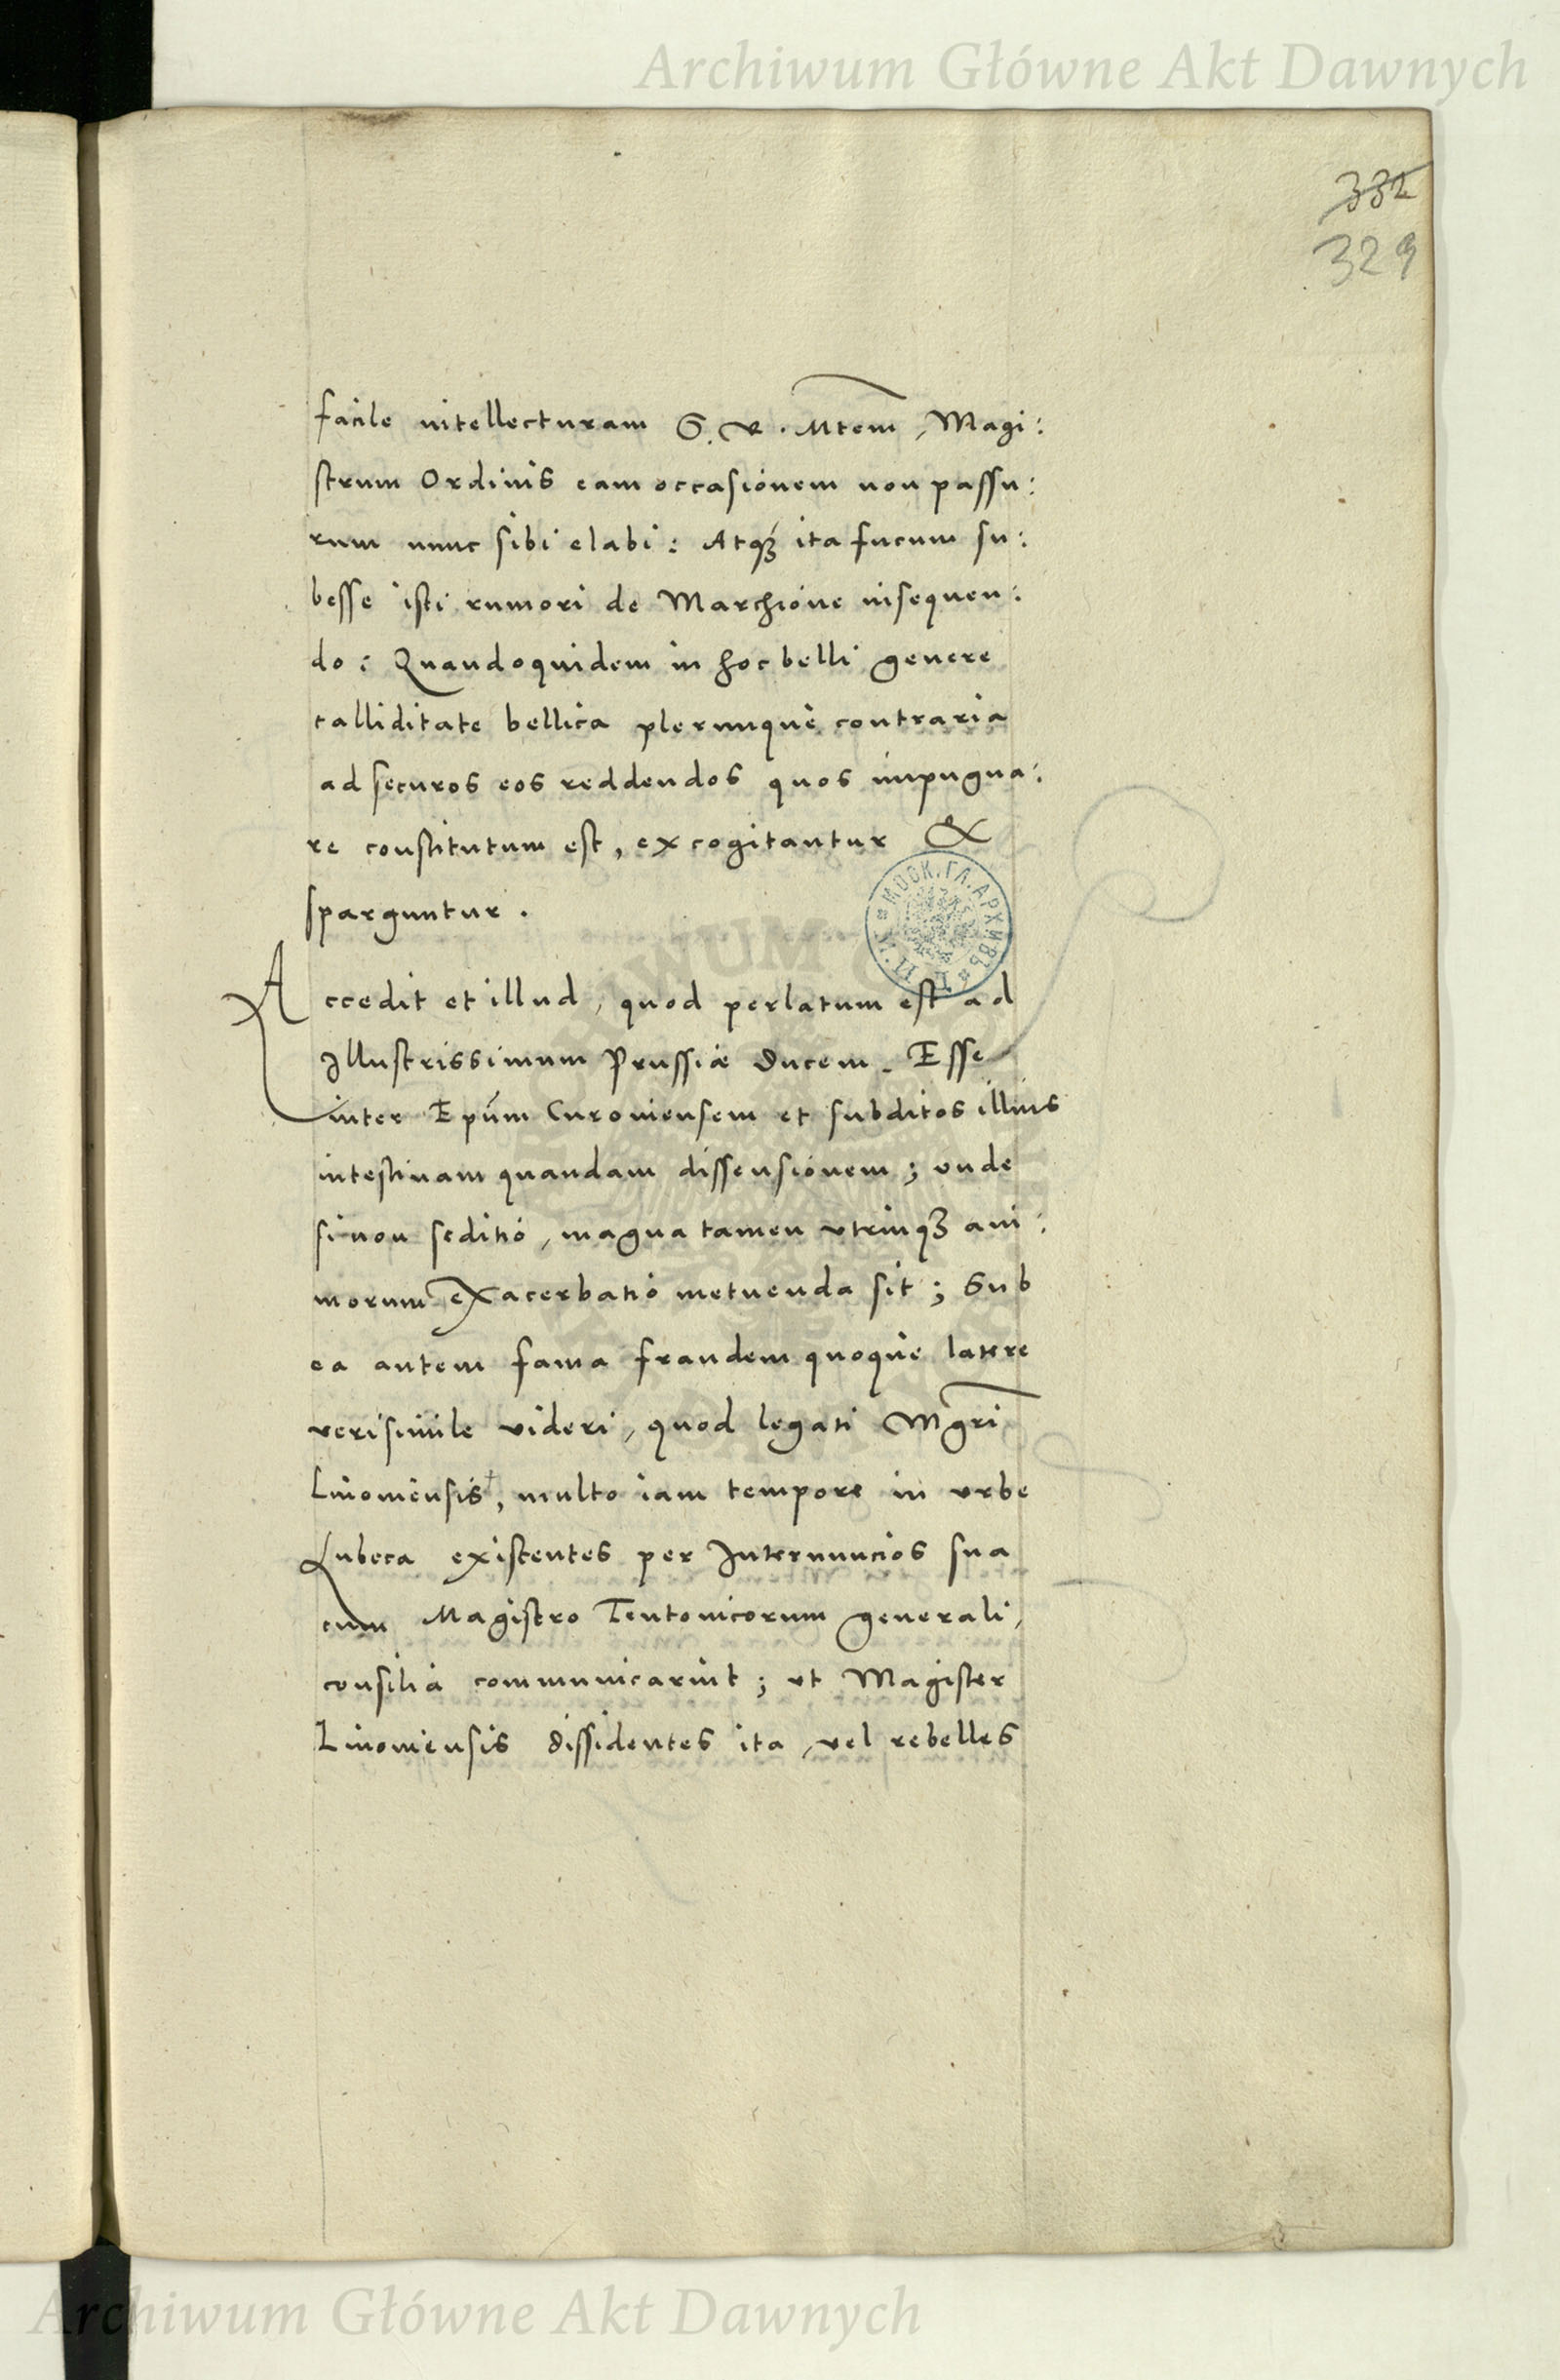 Archiwum Główne Akt Dawnych
332
329
facile intellecturam S. V. Mtem, Magi:
strum Ordinis eam occasionem non passu:
rum nunc sibi elabi: Atq3 ita fucum su:
besse isti rumori de Marchione insequen:
do: Quandoquidem in hoc belli genere
calliditate bellica plerunque contraria
ad securos eos reddendos quos impugna:
re constitutum est, excogitantur &
sparguntur.
МОСК. ГЛ. АРХИВЪ
Accedit et illud, quod perlatum est ad
Illustrissimum Prussiæ Ducem. Esse
inter Epum Curoniensem et subditos illius
intestinam quandam dissensionem; unde
si non seditio, magna tamen vtrinq3 ani:
morum exacerbatio metuenda sit; Sub
ea autem fama fraudem quoque latere
verisimile videri, quod legati Mgri
Liuoniensis, multo iam tempore in vrbe
Lubeca existentes per Internuncios sua
cum Magistro Teutonicorum generali,
consilia communicarint; vt Magister
Liuoniensis dissidentes ita, vel rebelles
Archiwum Główne Akt Dawnych